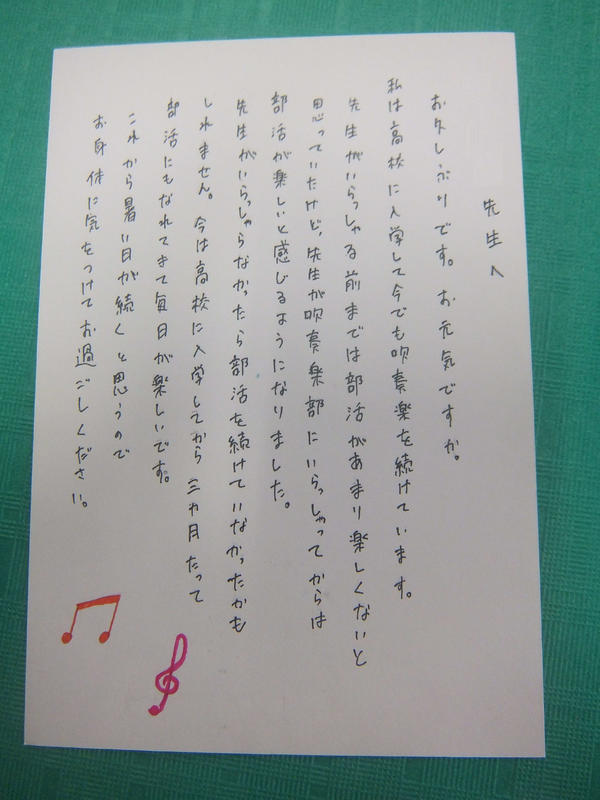 先生へ
お久しぶりです。お元気ですか。
私は高校に入学して今でも吹奏楽を続けています。
先生がいらっしゃる前までは部活があまり楽しくないと
思っていたけど、先生が吹奏楽部にいらっしゃってからは
部活が楽しいと感じるようになりました。
先生がいらっしゃらなかったら部活を続けていなかったかも
しれません。今は高校に入学してから三カ月たって
部活にもなれてきて毎日が楽しいです。
これから暑い日が続くと思うので
お身体に気をつけてお過ごしください。